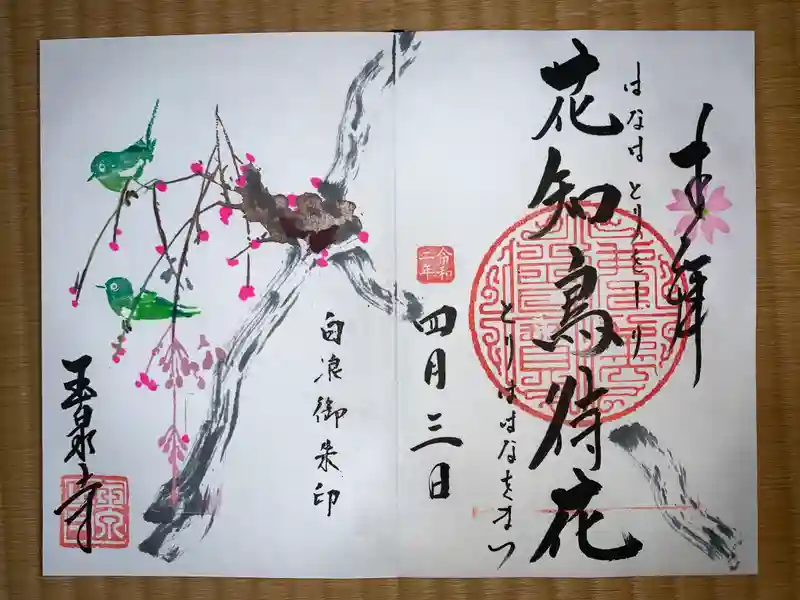 奉拝
はなは とりをしり
花知鳥待花
とりははなをまつ
令和
二年
四月三日
白浪御朱印
玉泉寺